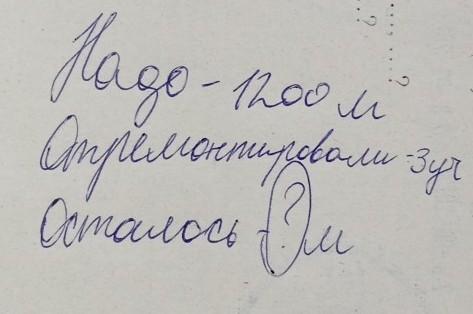 Надо - 1200 м
Отремонтировали - 3 уч
Осталось - ? м